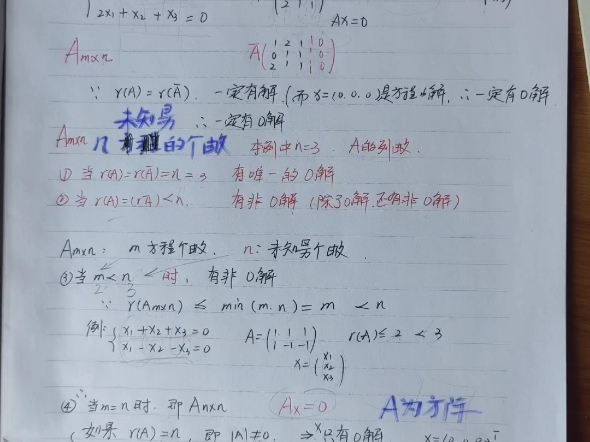 2x₁ + x₂ + x₃ = 0
Ax=0
Am×n
Ā ( 1 2 1 | 0
0 1 1 | 0
2 1 1 | 0 )
∵ r(A) = r(Ā). 一定有解.(而 x=(0.0.0)是方程的解, ∴一定有0解
∴ 一定有0解
未知易
Am×n n 的个故 本例中n=3. A的列数.
① 当 r(A)=r(Ā)=n=3 有唯一的0解
② 当 r(A)=(rĀ)<n. 有非0解 (除了0解,还有非0解)
Am×n: m方程个故. n:未知易个故
③当 m<n 时, 有非0解
2 3
∵ r(Am×n) ≤ min(m.n)= m < n
例: { x₁ + x₂ + x₃ = 0
x₁ - x₂ - x₃ = 0
A= ( 1 1 1
1 -1 -1 )
r(A)≤2 < 3
x= ( x₁
x₂
x₃ )
④ 当m=n时. 即 An×n Ax=0 A为方阵
(如果 r(A)=n, 即 |A|≠0. ⇒ x只有0解